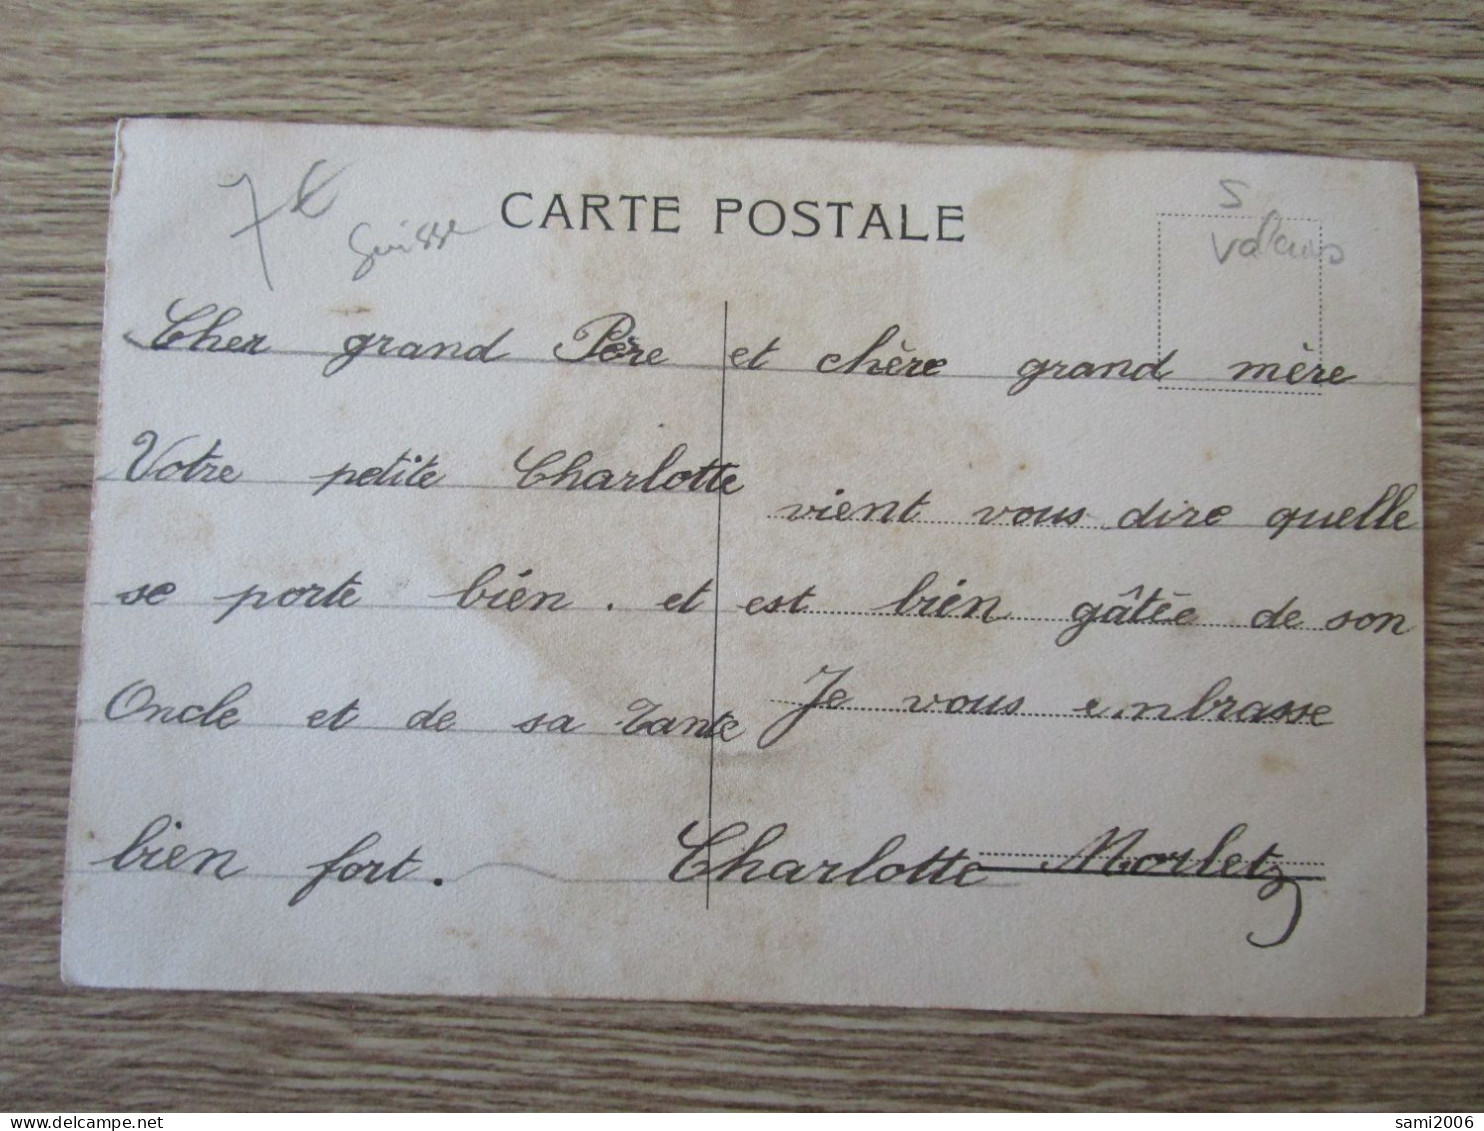 7 €
Suisse
CARTE POSTALE
S
Valeurs
Cher grand Père et chère grand mère
Votre petite Charlotte vient vous dire quelle
se porte bien. et est bien gâtée de son
Oncle et de sa Tante Je vous embrasse
bien fort. Charlotte Morletz
sami2006